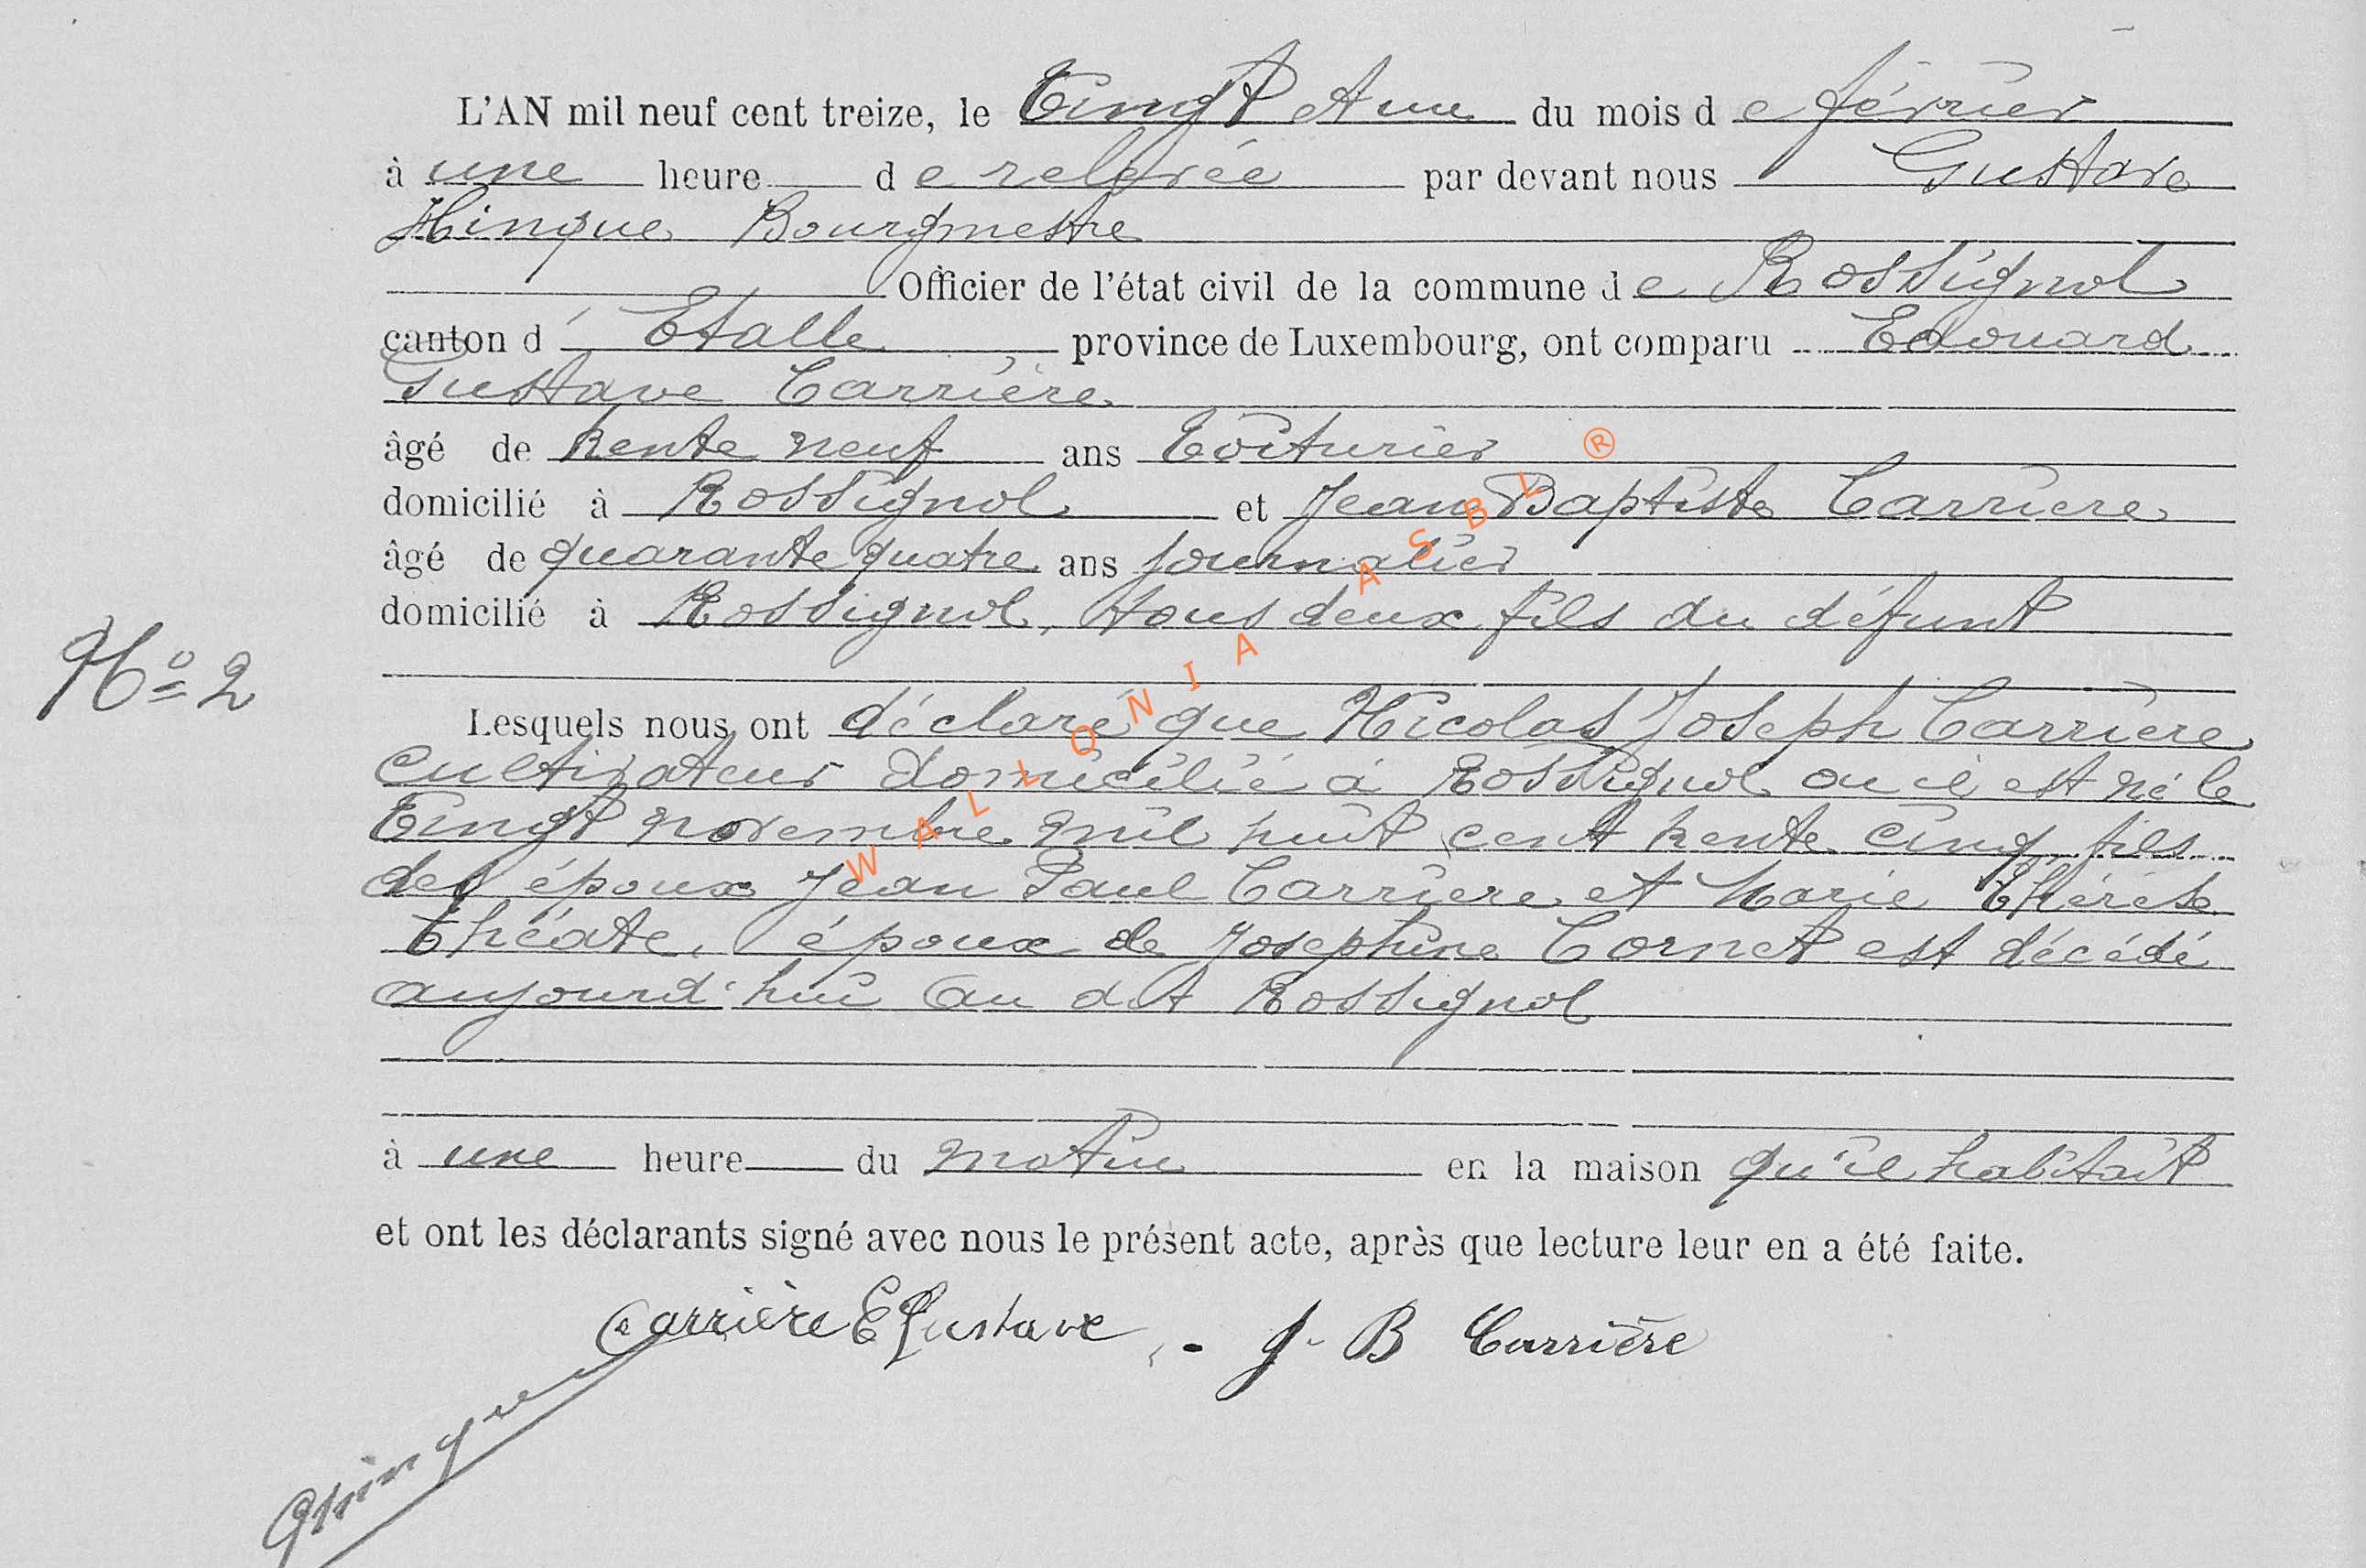 L'AN mil neuf cent treize, le Vingt et un du mois de février
à une heure de relevée par devant nous Gustave
Hinque Bourgmestre
Officier de l'état civil de la commune de Rossignol
canton d'Etalle province de Luxembourg, ont comparu Edouard
Gustave Carrière
âgé de trente neuf ans Voiturier
domicilié à Rossignol et Jean Baptiste Carrière
âgé de quarante quatre ans journalier
domicilié à Rossignol, tous deux fils du défunt
N° 2
Lesquels nous ont déclaré que Nicolas Joseph Carrière
cultivateur domicilié à Rossignol où il est né le
Vingt novembre mil huit cent trente cinq, fils
des époux Jean Paul Carrière et Marie Thérèse
Théate, époux de Josephine Cornet est décédé
aujourd'hui au dit Rossignol
à une heure du matin en la maison qu'il habitait
et ont les déclarants signé avec nous le présent acte, après que lecture leur en a été faite.
Carrière E Gustave. - J-B Carrière
GHinque
WALLONIA ASBL ®